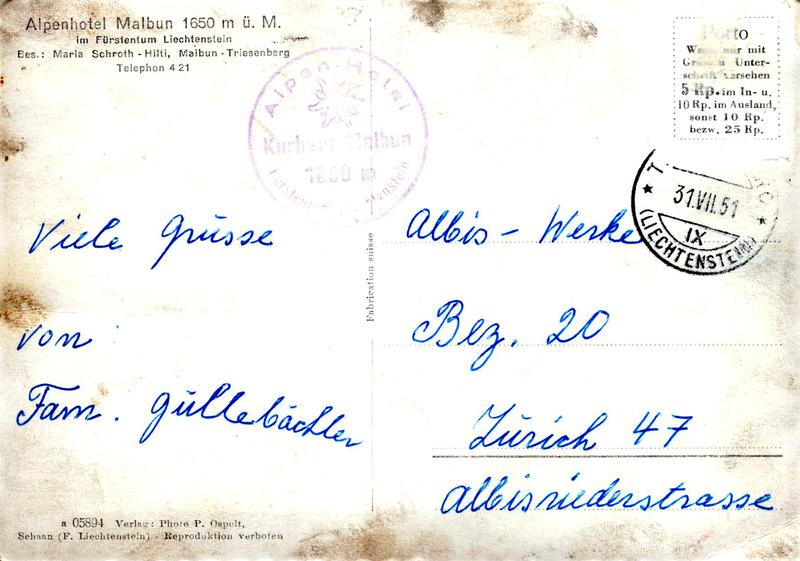 Alpenhotel Malbun 1650 m ü. M.
im Fürstentum Liechtenstein
Bes.: Maria Schroth - Hilti, Malbun - Triesenberg
Telephon 4 21
Alpen-Hotel
Kurhaus Malbun
1650 m
Porto
nur mit
Unter-
5 Rp. im In- u.
10 Rp. im Ausland,
sonst 10 Rp.
bezw. 25 Rp.
31.VII.51
IX
(LIECHTENSTEIN)
Viele Grüsse
von
Fam. Güllebächler
Fabrication suisse
Albis - Werke
Bez. 20
Zürich 47
Albisriederstrasse
a 05894 Verlag: Photo P. Ospelt,
Schaan (F. Liechtenstein) - Reproduktion verboten